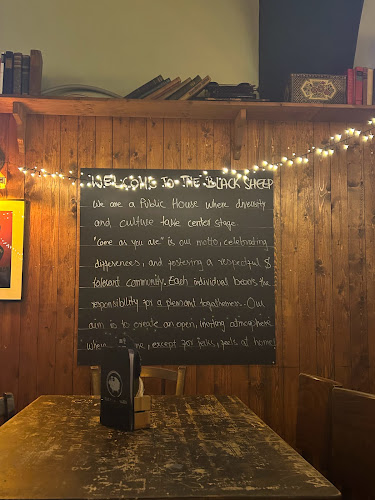 WELCOME TO THE BLACK SHEEP
We are a Public House where diversity
and culture take center stage.
"Come as you are" is our motto, celebrating
differences, and fostering a respectful &
tolerant community. Each individual bears the
responsibility for a pleasant togetherness. Our
aim is to create an open, inviting atmosphere
me, except for jerks, pools at home!